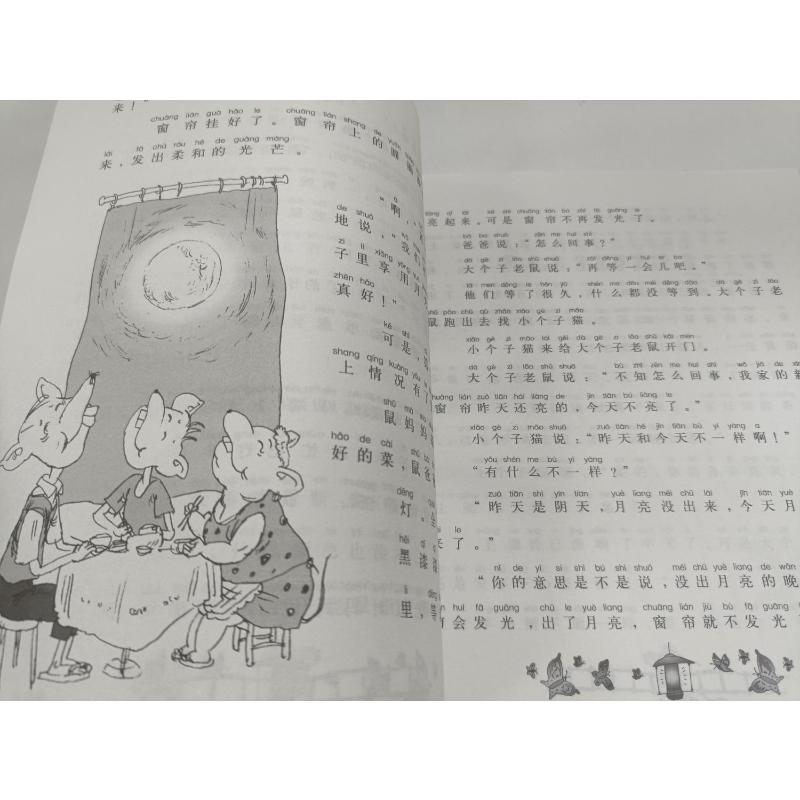 来！
chuāng lián guà hǎo le chuāng lián shang de yuán
窗帘挂好了。窗帘上的圆
lái fā chū róu hé de guāng máng
来，发出柔和的光芒。
à
“啊，
de shuō wǒ
地说，“我们
zi li xiǎng yòng
子里享用月
zhēn hǎo
真好！”
kě shì
可是，
shang qíng kuàng yǒu
上情况有了
shǔ mā ma
鼠妈妈
hǎo de cài
好的菜，鼠爸
dēng
灯。
hēi qī
黑漆漆
li děng
里，等
liàng qǐ lái kě shì chuāng lián bú zài fā guāng le
亮起来。可是窗帘不再发光了。
bà ba shuō zěn me huí shì
爸爸说：“怎么回事？”
dà gè zi lǎo shǔ shuō zài děng yí huì er ba
大个子老鼠说：“再等一会儿吧。”
tā men děng le hěn jiǔ shén me dōu méi děng dào dà gè zi lǎo
他们等了很久，什么都没等到。大个子老
shǔ pǎo chū qù zhǎo xiǎo gè zi māo
鼠跑出去找小个子猫。
xiǎo gè zi māo lái gěi dà gè zi lǎo shǔ kāi mén
小个子猫来给大个子老鼠开门。
dà gè zi lǎo shǔ shuō bù zhī zěn me huí shì wǒ jiā de
大个子老鼠说：“不知怎么回事，我家的新
chuāng lián zuó tiān hái liàng de jīn tiān bú liàng le
窗帘昨天还亮的，今天不亮了。”
xiǎo gè zi māo shuō zuó tiān hé jīn tiān bù yí yàng a
小个子猫说：“昨天和今天不一样啊！”
yǒu shén me bù yí yàng
“有什么不一样？”
zuó tiān shì yīn tiān yuè liang méi chū lái jīn tiān yuè
“昨天是阴天，月亮没出来，今天月
le
来了。”
nǐ de yì si shì bú shì shuō méi chū yuè liang de wǎn
“你的意思是不是说，没出月亮的晚
huì fā guāng chū le yuè liang chuāng lián jiù bù fā guāng
会发光，出了月亮，窗帘就不发光